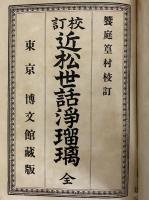 饗庭篁村校訂
校訂
近松世話淨瑠璃
全
東京 博文館藏版